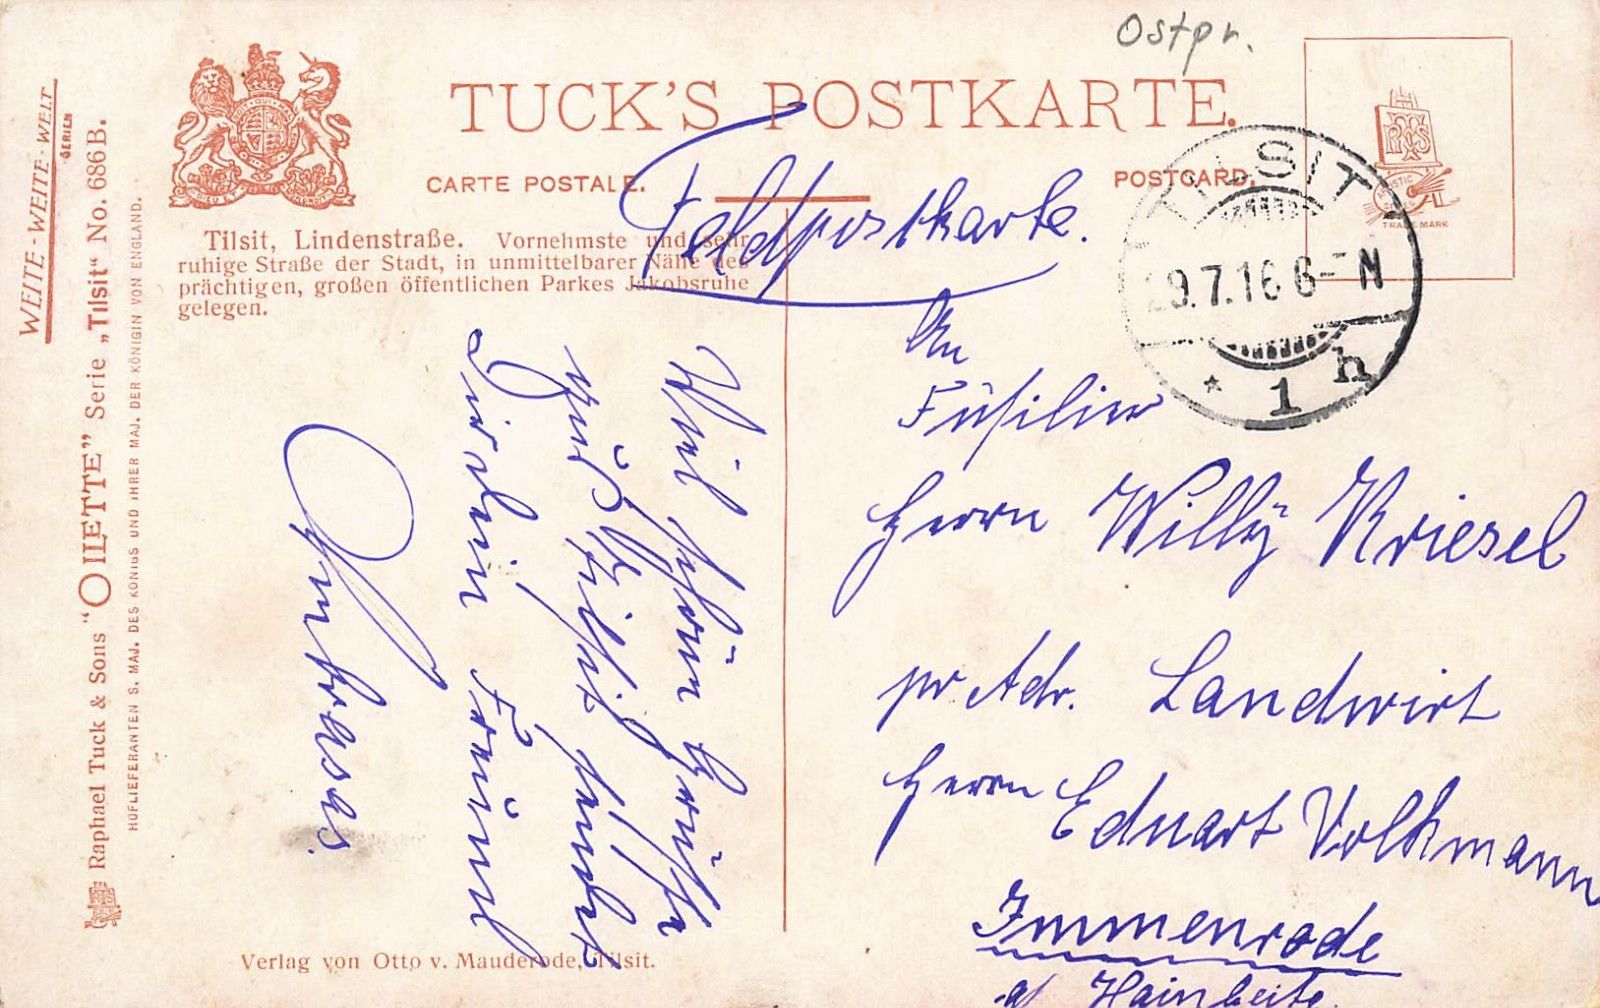 Ostpr.
TUCK'S POSTKARTE.
CARTE POSTALE.
POSTCARD.
TRADE MARK
Tilsit, Lindenstraße. Vornehmste und sehr
ruhige Straße der Stadt, in unmittelbarer Nähe des
prächtigen, großen öffentlichen Parkes Jakobsruhe
gelegen.
Feldpostkarte.
TILSIT
29.7.16 6-7 N
* 1 h
An
Füsilier
Herrn Willy Kriesel
pr Adr. Landwirt
Herrn Eduart Volkmann
Immenrode
a/ Hainleite.
Viel schöne Grüße
aus Tilsit sendet
Dir dein Freund
Ambrasas.
WEITE-WEITE-WELT
SERIEN
Raphael Tuck & Sons "OILETTE" Serie „Tilsit“ No. 686 B.
HOFLIEFERANTEN S. MAJ. DES KÖNIGS UND IHRER MAJ. DER KÖNIGIN VON ENGLAND.
Verlag von Otto v. Mauderode, Tilsit.